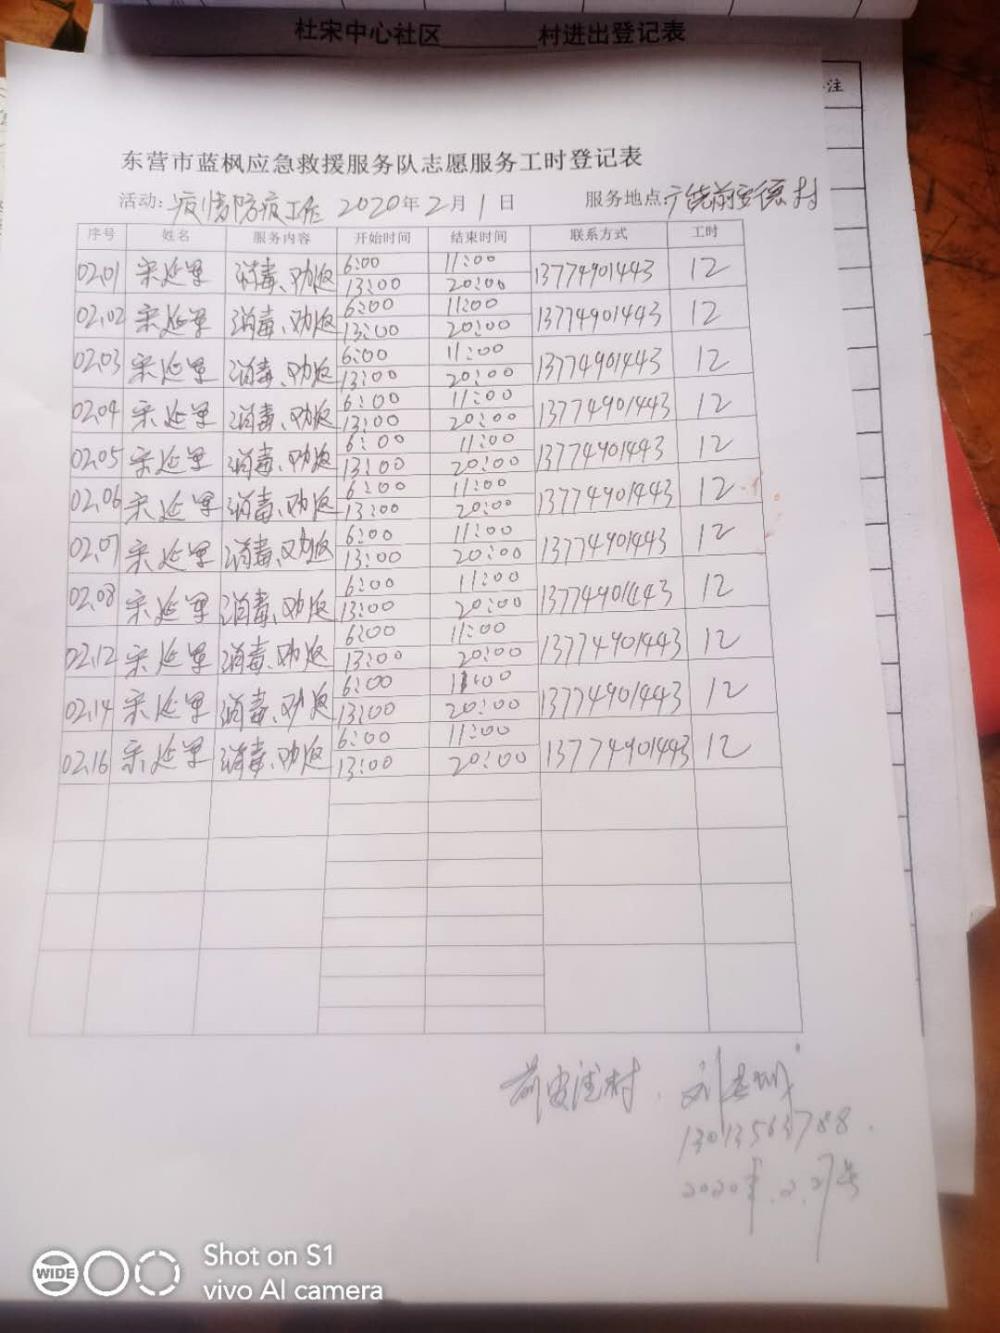 杜宋中心社区______村进出登记表
注
东营市蓝枫应急救援服务队志愿服务工时登记表
活动:疫情防疫工作 2020年2月1日 服务地点广饶前安德村
序号 姓名 服务内容 开始时间 结束时间 联系方式 工时
02.01 宋延军 消毒、劝返 6:00 11:00 13774901443 12
13:00 20:00
02.02 宋延军 消毒、劝返 6:00 11:00 13774901443 12
13:00 20:00
02.03 宋延军 消毒、劝返 6:00 11:00 13774901443 12
13:00 20:00
02.04 宋延军 消毒、劝返 6:00 11:00 13774901443 12
13:00 20:00
02.05 宋延军 消毒、劝返 6:00 11:00 13774901443 12
13:00 20:00
02.06 宋延军 消毒、劝返 6:00 11:00 13774901443 12
13:00 20:00
02.07 宋延军 消毒、劝返 6:00 11:00 13774901443 12
13:00 20:00
02.08 宋延军 消毒、劝返 6:00 11:00 13774901443 12
13:00 20:00
02.12 宋延军 消毒、劝返 6:00 11:00 13774901443 12
13:00 20:00
02.14 宋延军 消毒、劝返 6:00 11:00 13774901443 12
13:00 20:00
02.16 宋延军 消毒、劝返 6:00 11:00 13774901443 12
13:00 20:00
前安德村. 刘
13013563788.
2020年.2.27号
WIDE
Shot on S1
vivo AI camera